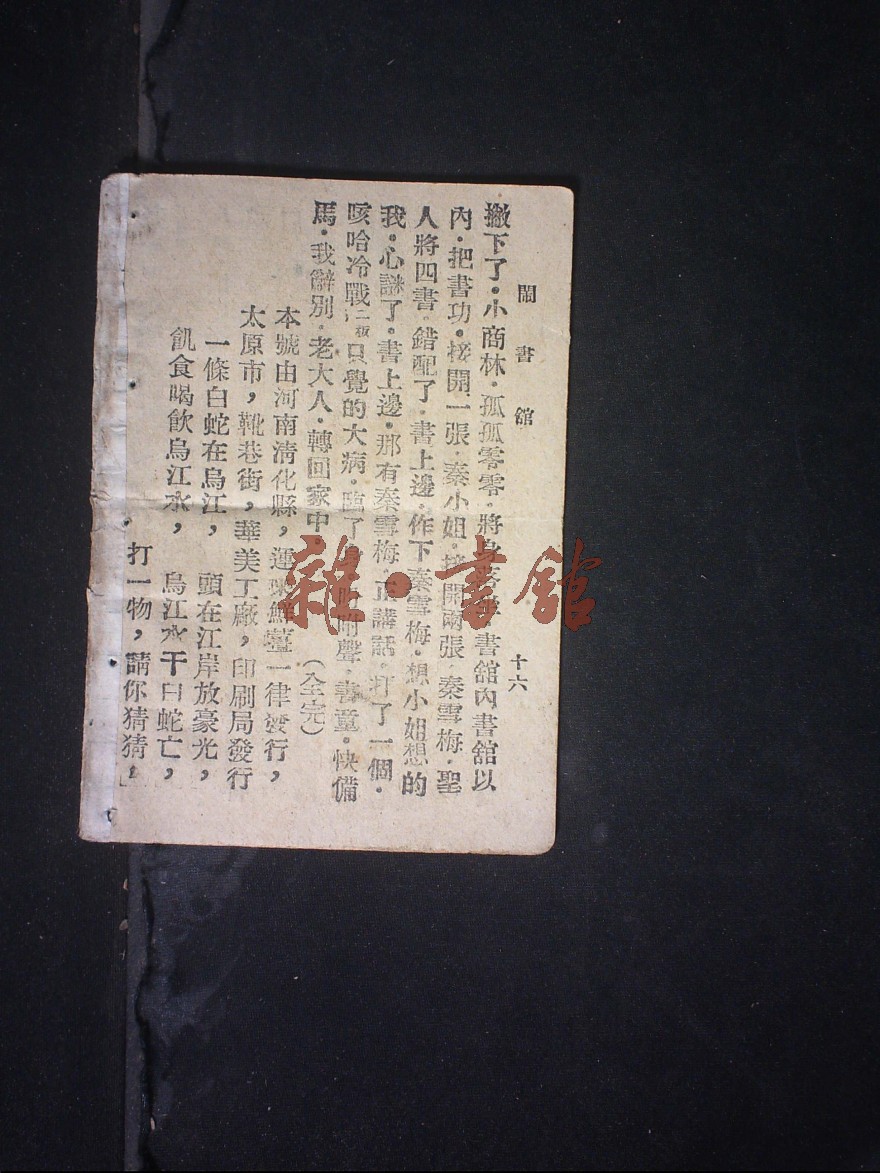 鬧書舘
十六
撇下了·小商林·孤孤零零·將身 書舘內書舘以
內·把書功·接開一張·秦小姐·接開兩張·秦雪梅·聖
人將四書·錯配了·書上邊·作下秦雪梅·想小姐想的
我·心謎了·書上邊·那有秦雪梅·正講話·打了一個·
咳哈冷戰二板只覺的大病·臨了 聲·書童·快備
馬·我辭別·老大人·轉回家中·(全完)
本號由河南清化縣,運來鮮薑一律發行,
太原市,靴巷街,華美工廠,印刷局發行
一條白蛇在烏江,頭在江岸放豪光,
飢食喝飲烏江水,烏江水干白蛇亡,
打一物,請你猜猜,
雜·書舘